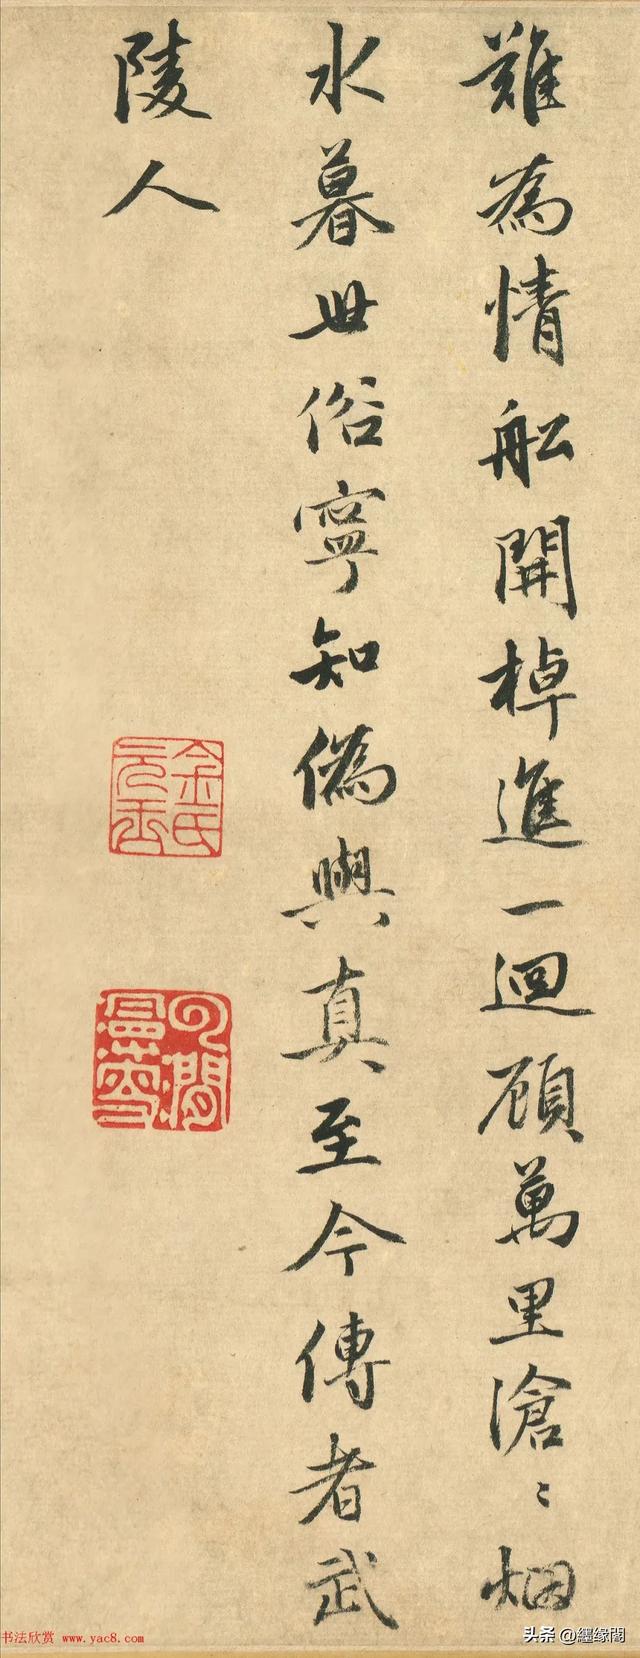 難為情船開棹進一迴顧萬里滄〻烟
水暮世俗寧知偽與真至今傳者武
陵人
书法欣赏 www.yac8.com
头条 @纆缘阁